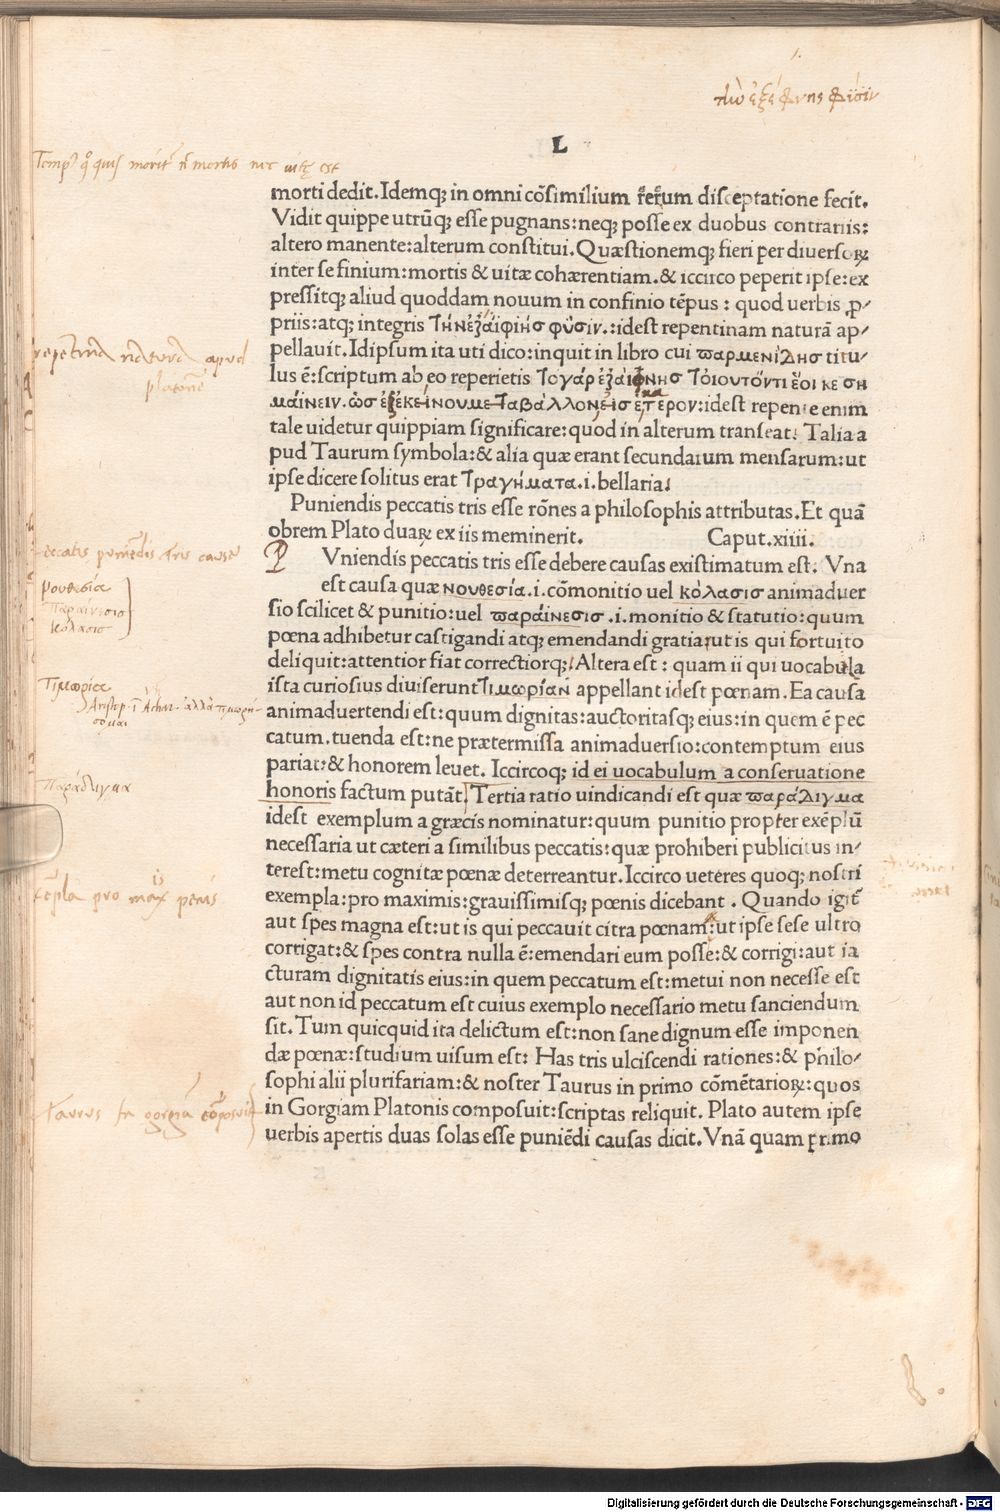 τὴν ἐξαίφνης φύσιν
L
Temp⁹ quo quis morit² nec mortis nec uitę est
morti dedit. Idemq; in omni cõsimilium rerum disceptatione fecit.
Vidit quippe utrũq; esse pugnans: neq; posse ex duobus contrariis:
altero manente: alterum constitui. Quæstionemq; fieri per diuersoꝝ
inter se finium: mortis & uitæ cohærentiam. & iccirco peperit ipse: ex
pressitq; aliud quoddam nouum in confinio tẽpus: quod uerbis ꝓ-
priis: atq; integris Τὴν ἐξαίφνης φύσιν.: idest repentinam naturã ap-
pellauit. Idipsum ita uti dico: inquit in libro cui παρμενίδης titu-
lus ẽ: scriptum ab eo reperietis Το γάρ ἐξαίφνης Τοιουτόν τι ἔοικε ση
μαίνειν. ὡς ἐξ ἐκείνου μεταβάλλον εἰς ἕτερον: idest repente enim
tale uidetur quippiam significare: quod in alterum transeat. Talia a
pud Taurum symbola: & alia quæ erant secundarum mensarum: ut
ipse dicere solitus erat Τραγήματα. i. bellaria.
repẽtina natura apud
platonẽ
Puniendis peccatis tris esse rõnes a philosophis attributas. Et quã
obrem Plato duaꝝ ex iis meminerit. Caput. xiiii.
P
Vniendis peccatis tris esse debere causas existimatum est. Vna
est causa quæ νουθεσία. i. cõmonitio uel κόλασισ animaduer
sio scilicet & punitio: uel παράινεσισ. i. monitio & statutio: quum
pœna adhibetur castigandi atq; emendandi gratia: ut is qui fortuito
deliquit: attentior fiat correctiorq;. Altera est: quam ii qui uocabula
ista curiosius diuiserunt Τιμωρίαν appellant idest pœnam. Ea causa
animaduertendi est: quum dignitas: auctoritasq; eius: in quem ẽ pec
catum. tuenda est: ne prætermissa animaduersio: contemptum eius
pariat: & honorem leuet. Iccircoq; id ei uocabulum a conseruatione
honoris factum putãt. Tertia ratio uindicandi est quæ παράδιγμα
idest exemplum a græcis nominatur: quum punitio propter exẽplũ
necessaria ut cæteri a similibus peccatis: quæ prohiberi publicitus in-
terest: metu cognitæ pœnæ deterreantur. Iccirco ueteres quoq; nostri
exempla: pro maximis: grauissimisq; pœnis dicebant. Quando igit̃
aut spes magna est: ut is qui peccauit citra pœnam: ut ipse sese ultro
corrigat: & spes contra nulla ẽ: emendari eum posse: & corrigi: aut ia
cturam dignitatis eius: in quem peccatum est: metui non necesse est
aut non id peccatum est cuius exemplo necessario metu sanciendum
sit. Tum quicquid ita delictum est: non sane dignum esse imponen
dæ pœnæ: studium uisum est: Has tris ulciscendi rationes: & philo-
sophi alii plurifariam: & noster Taurus in primo cõmẽtarioꝝ: quos
in Gorgiam Platonis composuit: scriptas reliquit. Plato autem ipse
uerbis apertis duas solas esse puniẽdi causas dicit. Vnã quam primo
peccatis puniẽdis tris cause
νουθεσία
Παραίνεσισ
κόλασισ
Τιμωρία
Aristop. ĩ Achar. ἀλλὰ τιμωρή-
σομαι
Παράδιγμα
exẽpla pro maxis penis
Taurus in gorgiã cõposuit
Digitalisierung gefördert durch die Deutsche Forschungsgemeinschaft - DFG